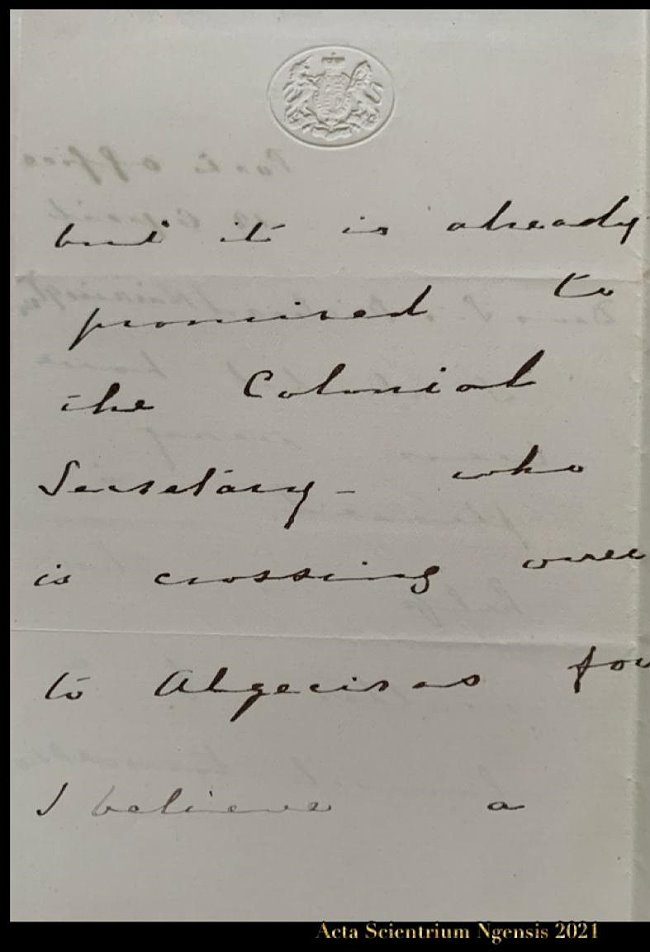 but it is already
promised to
the Colonial
Secretary - who
is crossing over
to Algeciras for
I believe a
Acta Scientrium Ngensis 2021